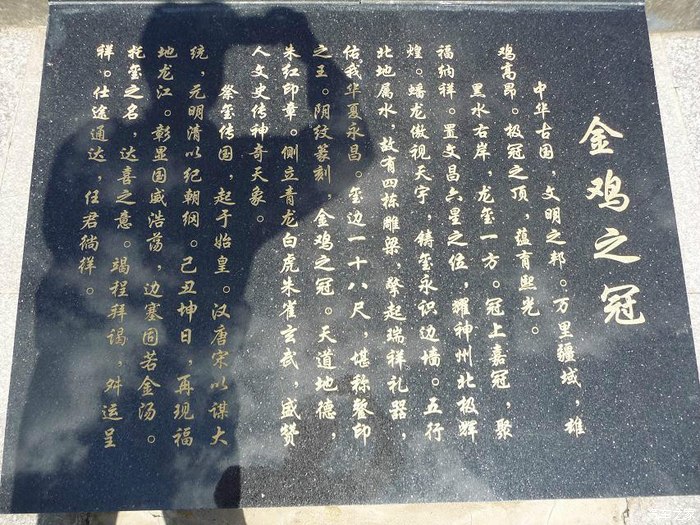 金鸡之冠
中华古国，文明之邦。万里疆域，雄
鸡高昂。极冠之顶，蕴育熙光。
黑水右岸，龙玺一方。冠上嘉冠，聚
福纳祥。置文昌六星之位，耀神州北极辉
煌。蟠龙傲视天宇，铸玺永识边墙。五行
北地属水，故有四栋雕梁，擎起瑞祥礼器，
佑我华夏永昌。玺边一十八尺，堪称磬印
之王。阴纹篆刻，金鸡之冠。天道地德，
朱红印章。侧立青龙白虎朱雀玄武，盛赞
人文史传神奇天象。
祭玺传国，起于始皇。汉唐宋以谋大
统，元明清以纪朝纲。己丑坤日，再现福
地龙江。彰显国威浩荡，边塞固若金汤。
托玺之名，达喜之意。竭程拜谒，舛运呈
祥。仕途通达，任君徜祥。